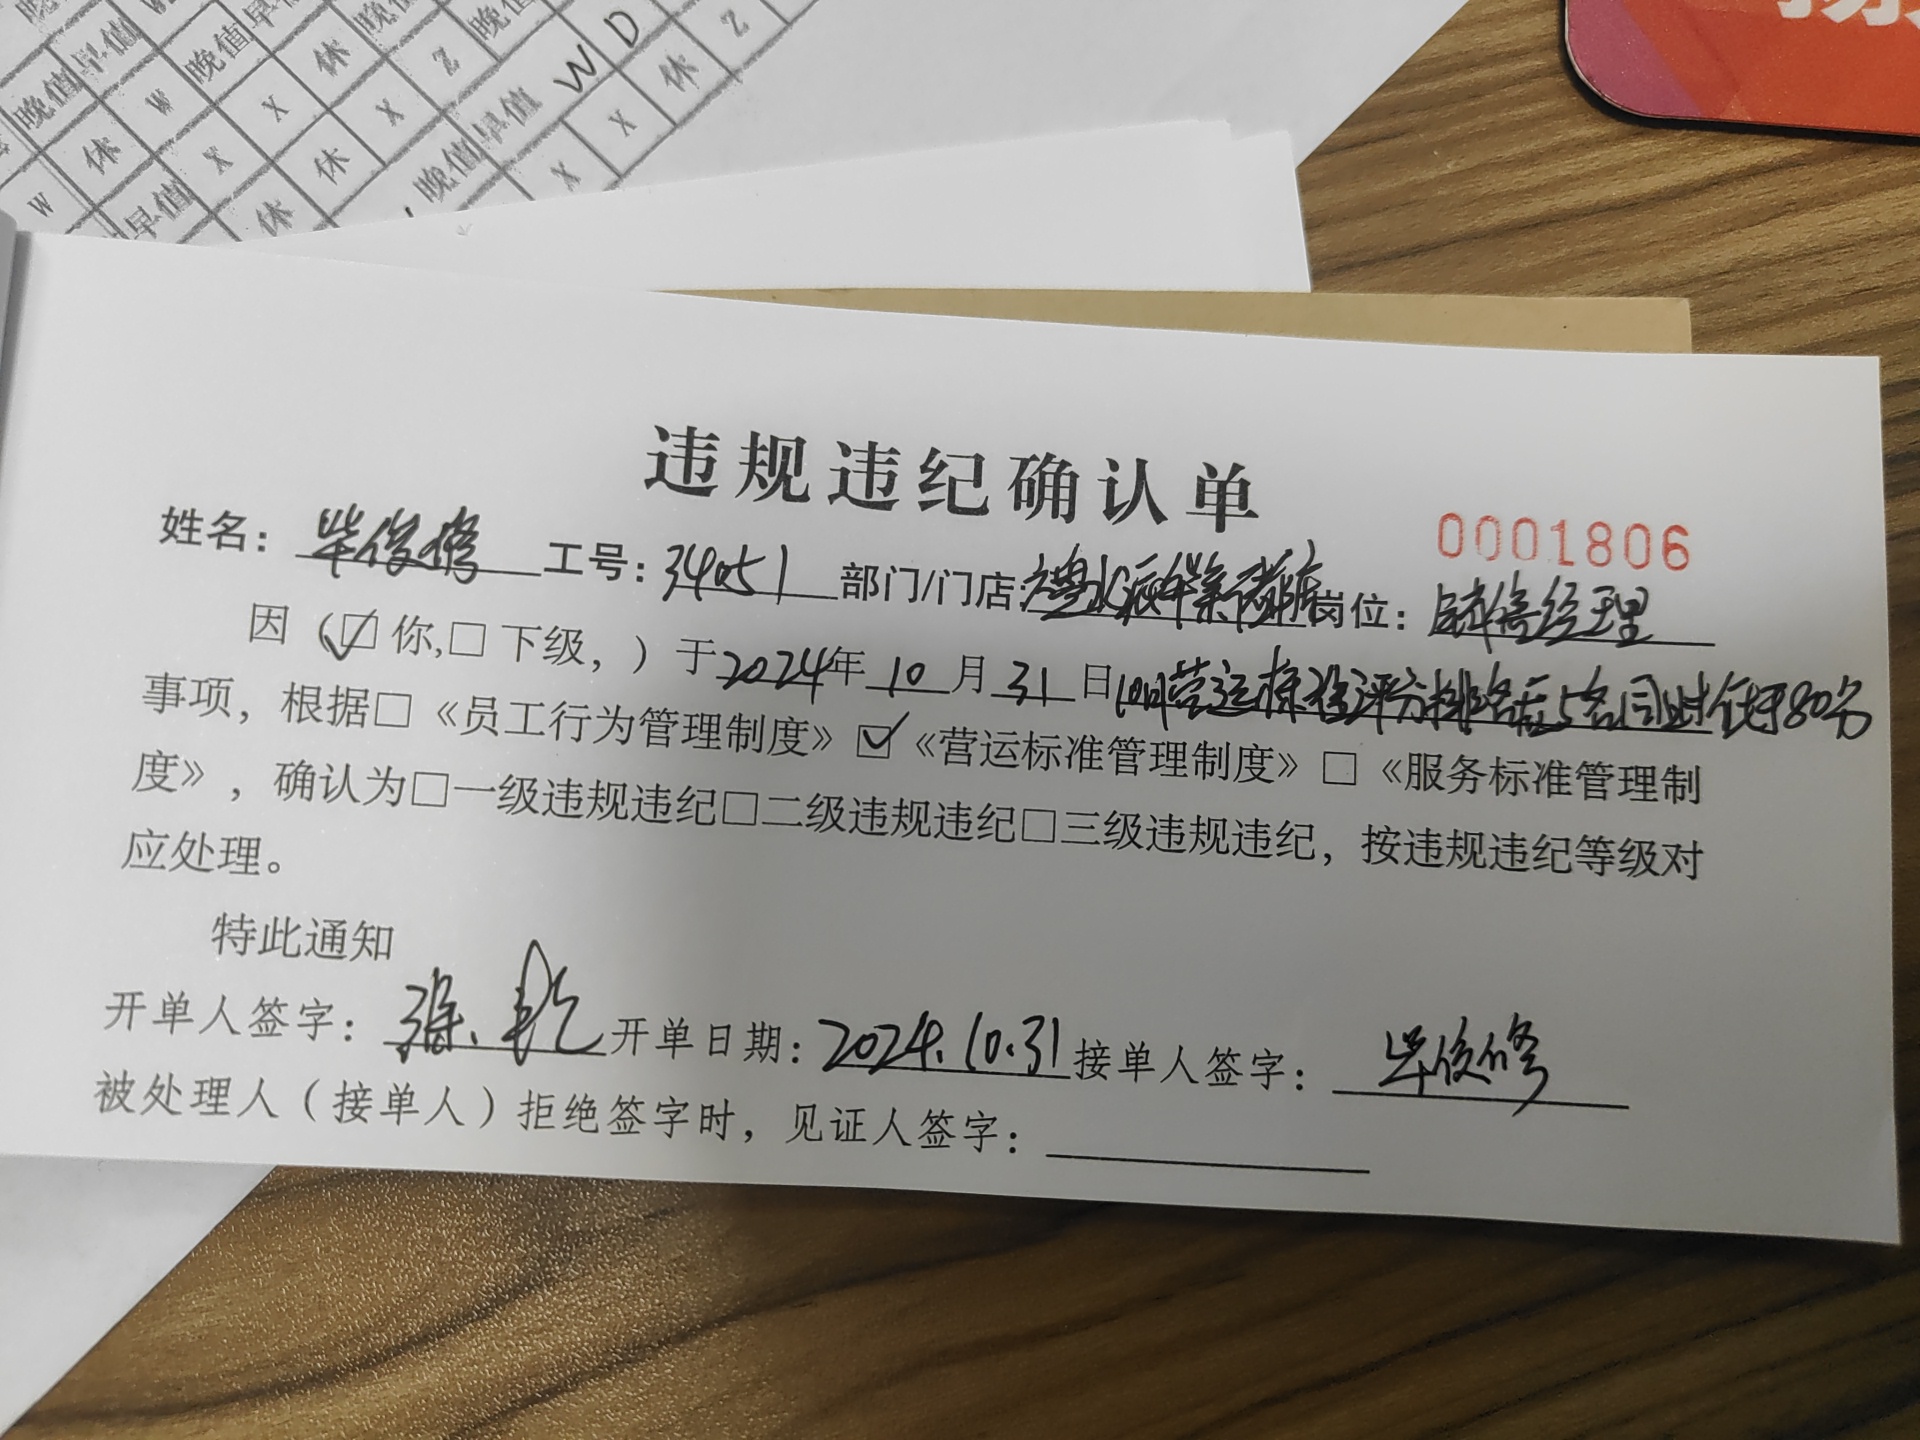 晚值 早值 晚值 早值 晚值 晚值
W 休 Z
休 X X 早值 W D
W X 休 晚值 X 休 Z
早值 休 X
违规违纪确认单
0001806
姓名：毕俊修 工号：34051 部门/门店： 岗位：店经理
因（☑你,□下级，）于2024年10月31日10月营运标准评分排名后5名同时低于80分
事项，根据□《员工行为管理制度》☑《营运标准管理制度》□《服务标准管理制
度》，确认为□一级违规违纪□二级违规违纪□三级违规违纪，按违规违纪等级对
应处理。
特此通知
开单人签字： 开单日期：2024.10.31 接单人签字：毕俊修
被处理人（接单人）拒绝签字时，见证人签字：